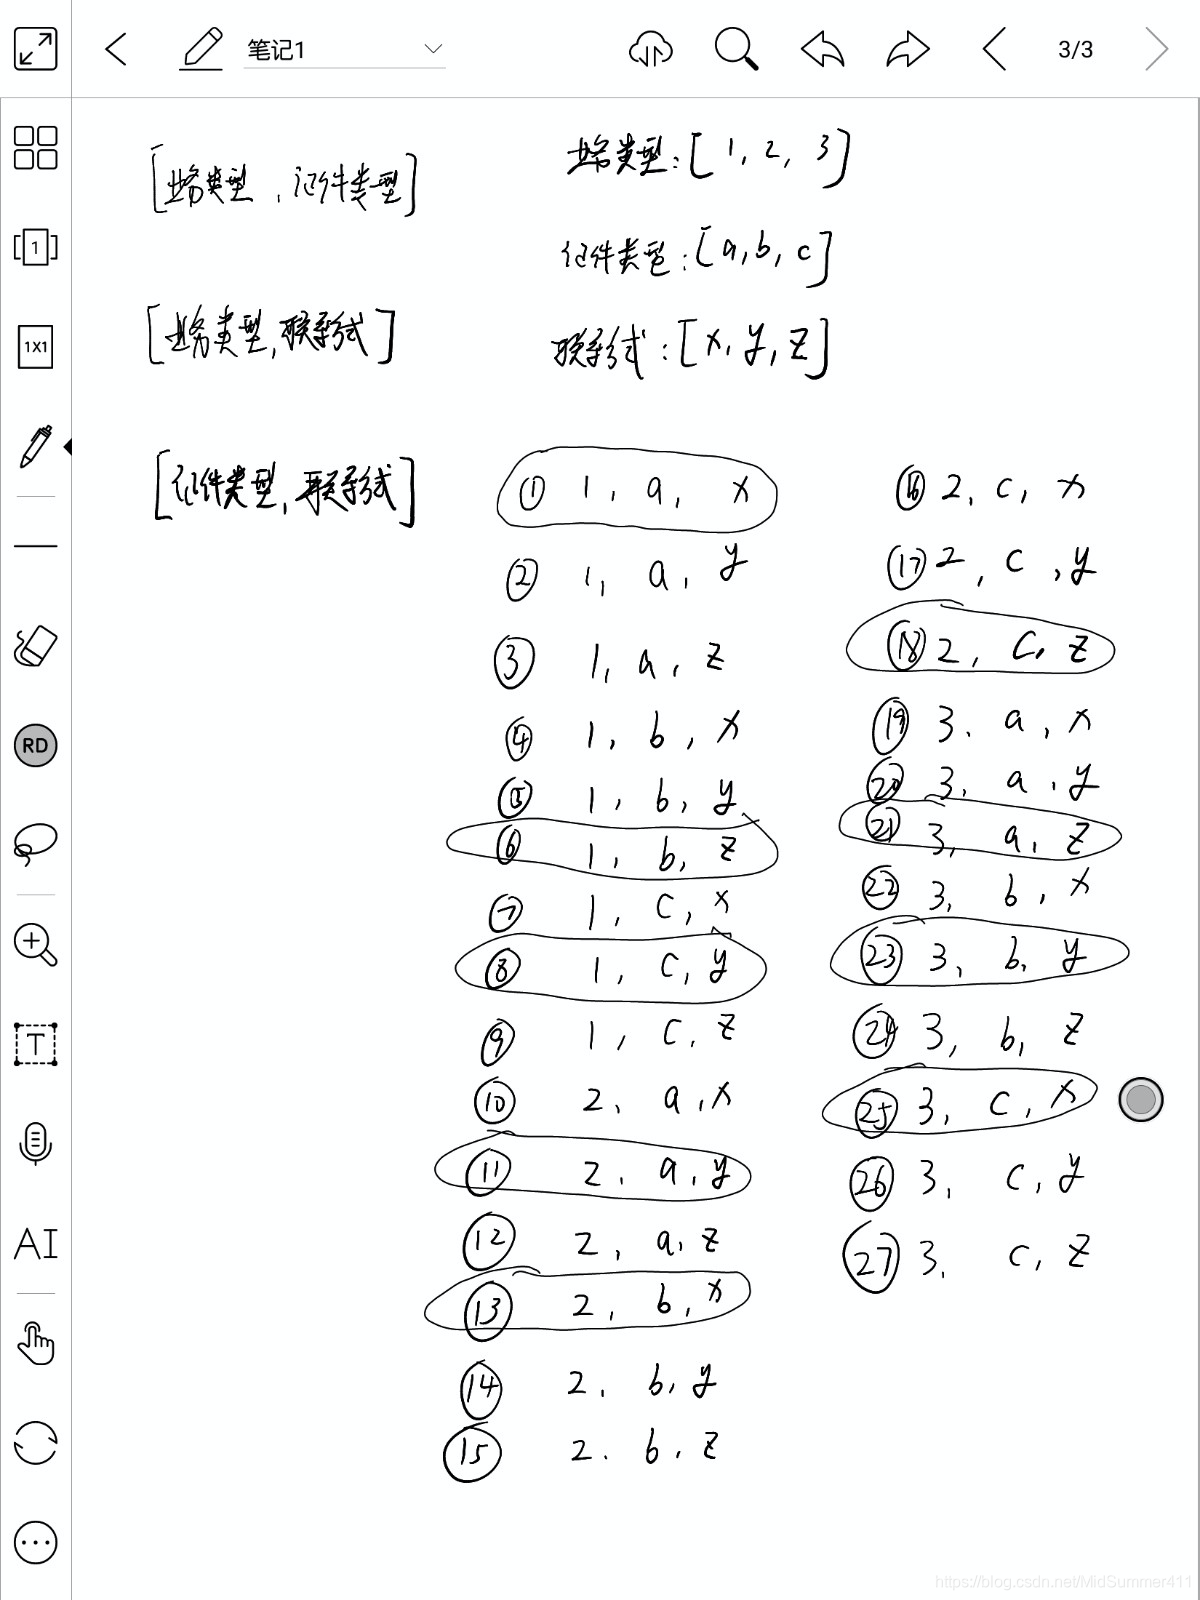 笔记1
3/3
[业务类型, 证件类型]
[业务类型, 联系形式]
[证件类型, 联系形式]
业务类型: [1, 2, 3]
证件类型: [a, b, c]
联系形式: [x, y, z]
① 1, a, x
② 1, a, y
③ 1, a, z
④ 1, b, x
⑤ 1, b, y
⑥ 1, b, z
⑦ 1, c, x
⑧ 1, c, y
⑨ 1, c, z
⑩ 2, a, x
⑪ 2, a, y
⑫ 2, a, z
⑬ 2, b, x
⑭ 2, b, y
⑮ 2, b, z
⑯ 2, c, x
⑰ 2, c, y
⑱ 2, c, z
⑲ 3, a, x
⑳ 3, a, y
㉑ 3, a, z
㉒ 3, b, x
㉓ 3, b, y
㉔ 3, b, z
㉕ 3, c, x
㉖ 3, c, y
㉗ 3, c, z
1
1X1
RD
T
AI
https://blog.csdn.net/MidSummer411